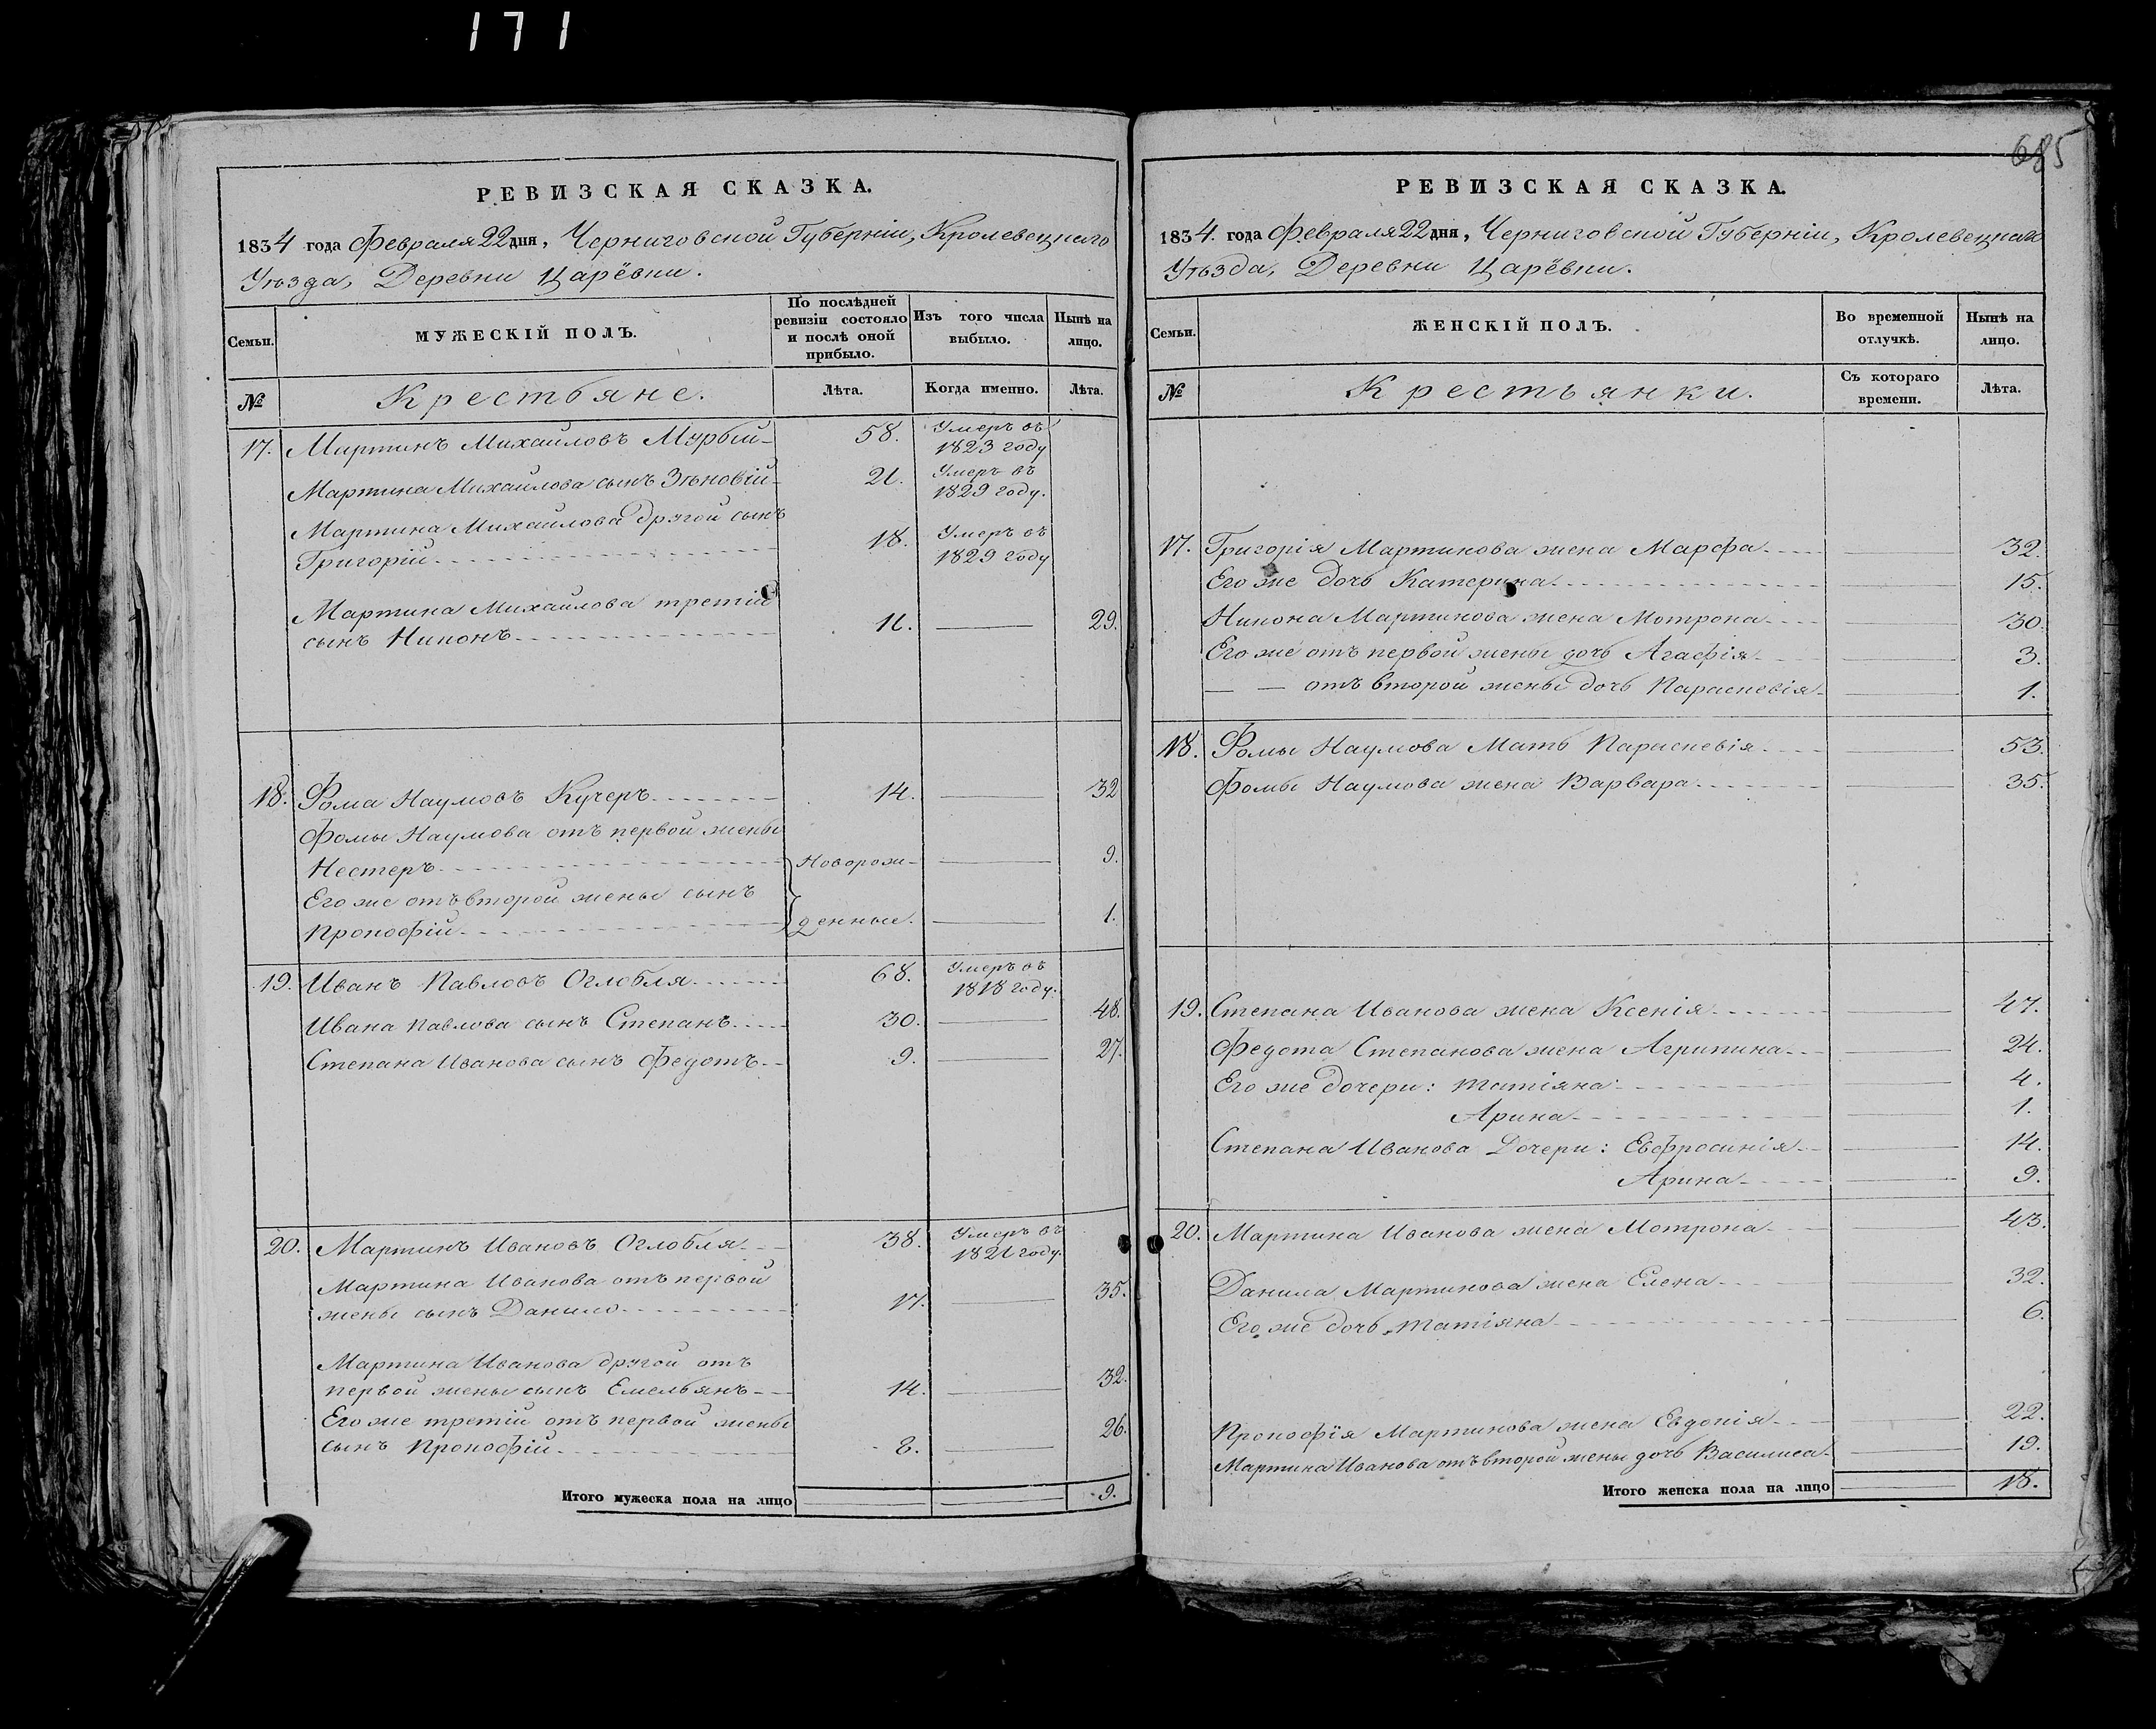 171
685
РЕВИЗСКАЯ СКАЗКА.
1834 года Февраля 22 дня, Черниговской Губерніи, Кролевецкаго
Уѣзда, Деревни Царёвки.
Семьи.
МУЖЕСКІЙ ПОЛЪ.
По послѣдней
ревизіи состояло
и послѣ оной
прибыло.
Изъ того числа
выбыло.
Нынѣ на
лицо.
№
Крестьяне.
Лѣта.
Когда именно.
Лѣта.
17. Мартинъ Михайловъ 58. Умеръ въ
1823 году
Мартина Михайлова сынъ Зѣновій 21. Умеръ въ
1829 году.
Мартина Михайлова другой сынъ
Григорій 18. Умеръ въ
1829 году
Мартина Михайлова третій
сынъ Никонъ 11. 29.
18. Фома Наумовъ Кучеръ 14. 32
Фомы Наумова отъ первой жены
Нестеръ Новорож- 9.
Его же отъ второй жены сынъ
Прокофій денные. 1.
19. Иванъ Павловъ Оглобля 68. Умеръ въ
1818 году.
Ивана Павлова сынъ Степанъ 30. 48.
Степана Иванова сынъ Федотъ 9. 27.
20. Мартинъ Ивановъ Оглобля 38. Умеръ въ
1821 году.
Мартина Иванова отъ первой
жены сынъ Данило 17. 35.
Мартина Иванова другой отъ
первой жены сынъ Емельянъ 14. 32.
Его же третій отъ первой жены
сынъ Прокофій 8. 26.
Итого мужеска пола на лицо 9.
РЕВИЗСКАЯ СКАЗКА.
1834. года Февраля 22 дня, Черниговской Губерніи, Кролевецкаго
Уѣзда, Деревни Царёвки.
Семьи.
ЖЕНСКІЙ ПОЛЪ.
Во временной
отлучкѣ.
Нынѣ на
лицо.
№
Крестьянки.
Съ котораго
времени.
Лѣта.
17. Григорія Мартинова жена Марфа 32.
Его же дочь Катерина 15.
Никона Мартинова жена Мотрона 30.
Его же отъ первой жены дочь Агафія 3.
— — отъ второй жены дочь Параскевія 1.
18. Фомы Наумова Мать Параскевія 53.
Фомы Наумова жена Варвара 35.
19. Степана Иванова жена Ксенія 47.
Федота Степанова жена Агрипина 24.
Его же дочери: Татіяна 4.
Арина 1.
Степана Иванова Дочери: Евфросинія 14.
Арина 9.
20. Мартина Иванова жена Мотрона 43.
Данила Мартинова жена Елена 32.
Его же дочь Татіяна 6.
Прокофія Мартинова жена Евдокія 22.
Мартина Иванова отъ второй жены дочь Василиса 19.
Итого женска пола на лицо 18.